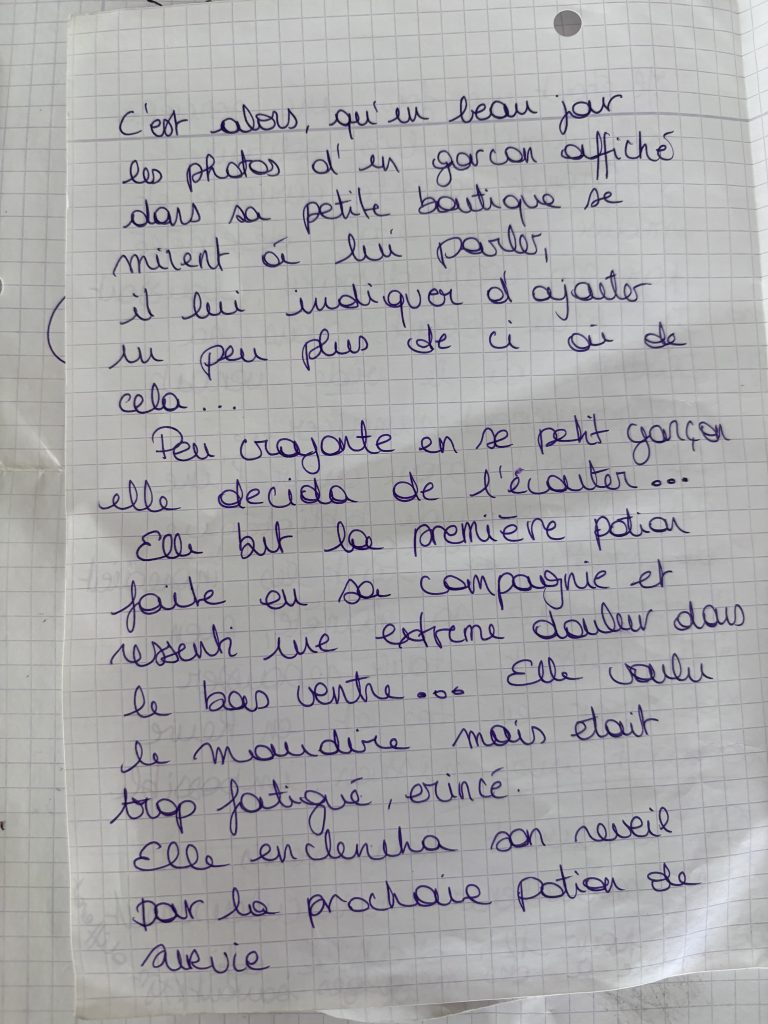 C'est alors, qu'un beau jour
les photos d'un garcon affiché
dans sa petite boutique se
mirent à lui parler,
il lui indiquer d ajouter
un peu plus de ci où de
cela...
Peu croyante en se petit garçon
elle decida de l'écouter...
Elle but la première potion
faite en sa compagnie et
ressenti une extreme douleur dans
le bas ventre... Elle voulu
le maudire mais etait
trop fatigué, erincé.
Elle enclencha son reveil
par la prochaie potion de
survie